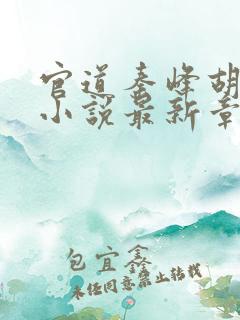 官道秦峰胡
小说最新章
包宜鑫
未经同意禁止转载